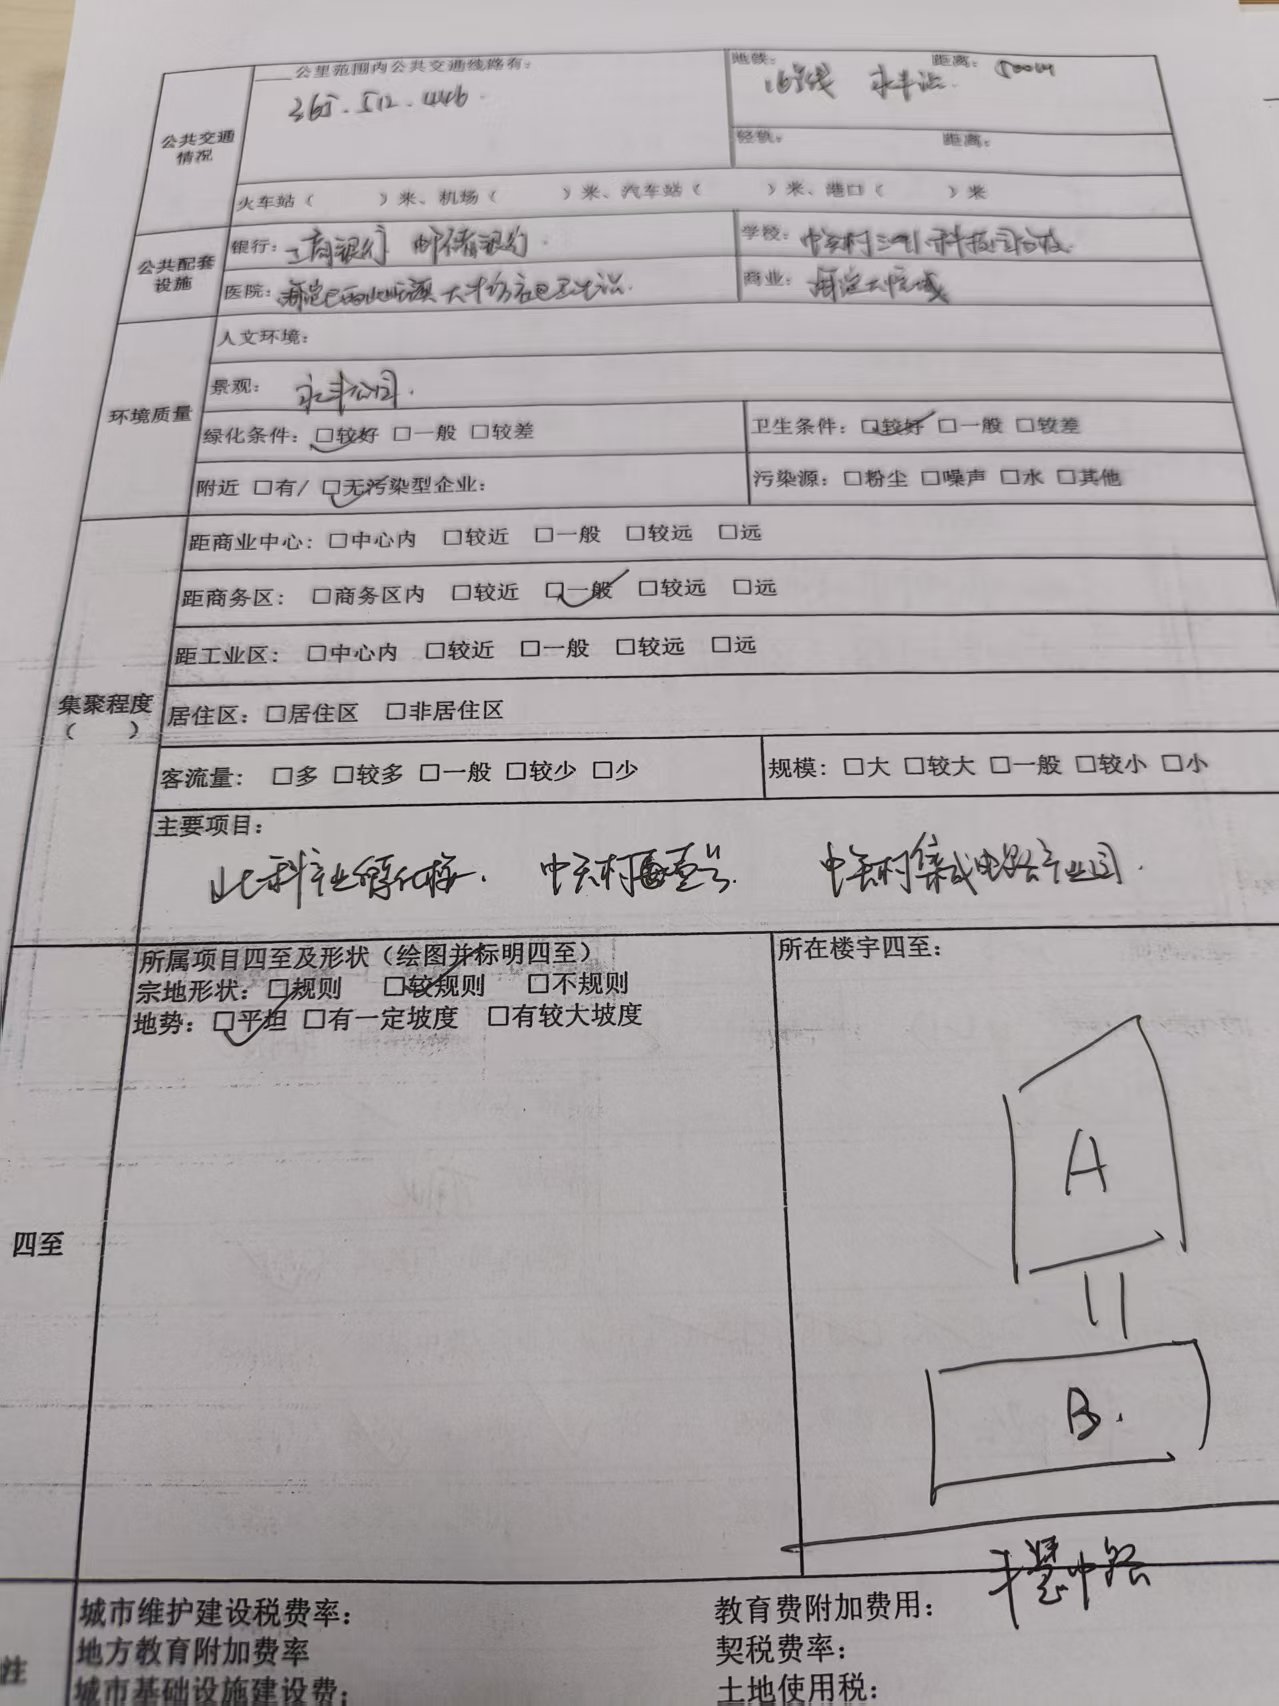 公里范围内公共交通线路有：
365. 512. 446.
地铁： 距离：500m
16号线 永丰站.
轻轨： 距离：
公共交通情况
火车站（ ）米、机场（ ）米、汽车站（ ）米、港口（ ）米
公共配套设施
银行：工商银行 邮储银行.
学校：中关村三小科技园分校.
医院：
商业：海淀大悦城
环境质量
人文环境：
景观：永丰公园.
绿化条件：□较好 □一般 □较差
卫生条件：□较好 □一般 □较差
附近 □有/ □无污染型企业：
污染源：□粉尘 □噪声 □水 □其他
集聚程度
（ ）
距商业中心：□中心内 □较近 □一般 □较远 □远
距商务区： □商务区内 □较近 □一般 □较远 □远
距工业区： □中心内 □较近 □一般 □较远 □远
居住区：□居住区 □非居住区
客流量： □多 □较多 □一般 □较少 □少
规模：□大 □较大 □一般 □较小 □小
主要项目：
北科产业孵化楼. 中关村壹号. 中关村集成电路产业园.
四至
所属项目四至及形状（绘图并标明四至）
宗地形状：□规则 □较规则 □不规则
地势：□平坦 □有一定坡度 □有较大坡度
所在楼宇四至：
A
B.
丰慧中路
性
城市维护建设税费率：
教育费附加费用：
地方教育附加费率
契税费率：
城市基础设施建设费：
土地使用税：